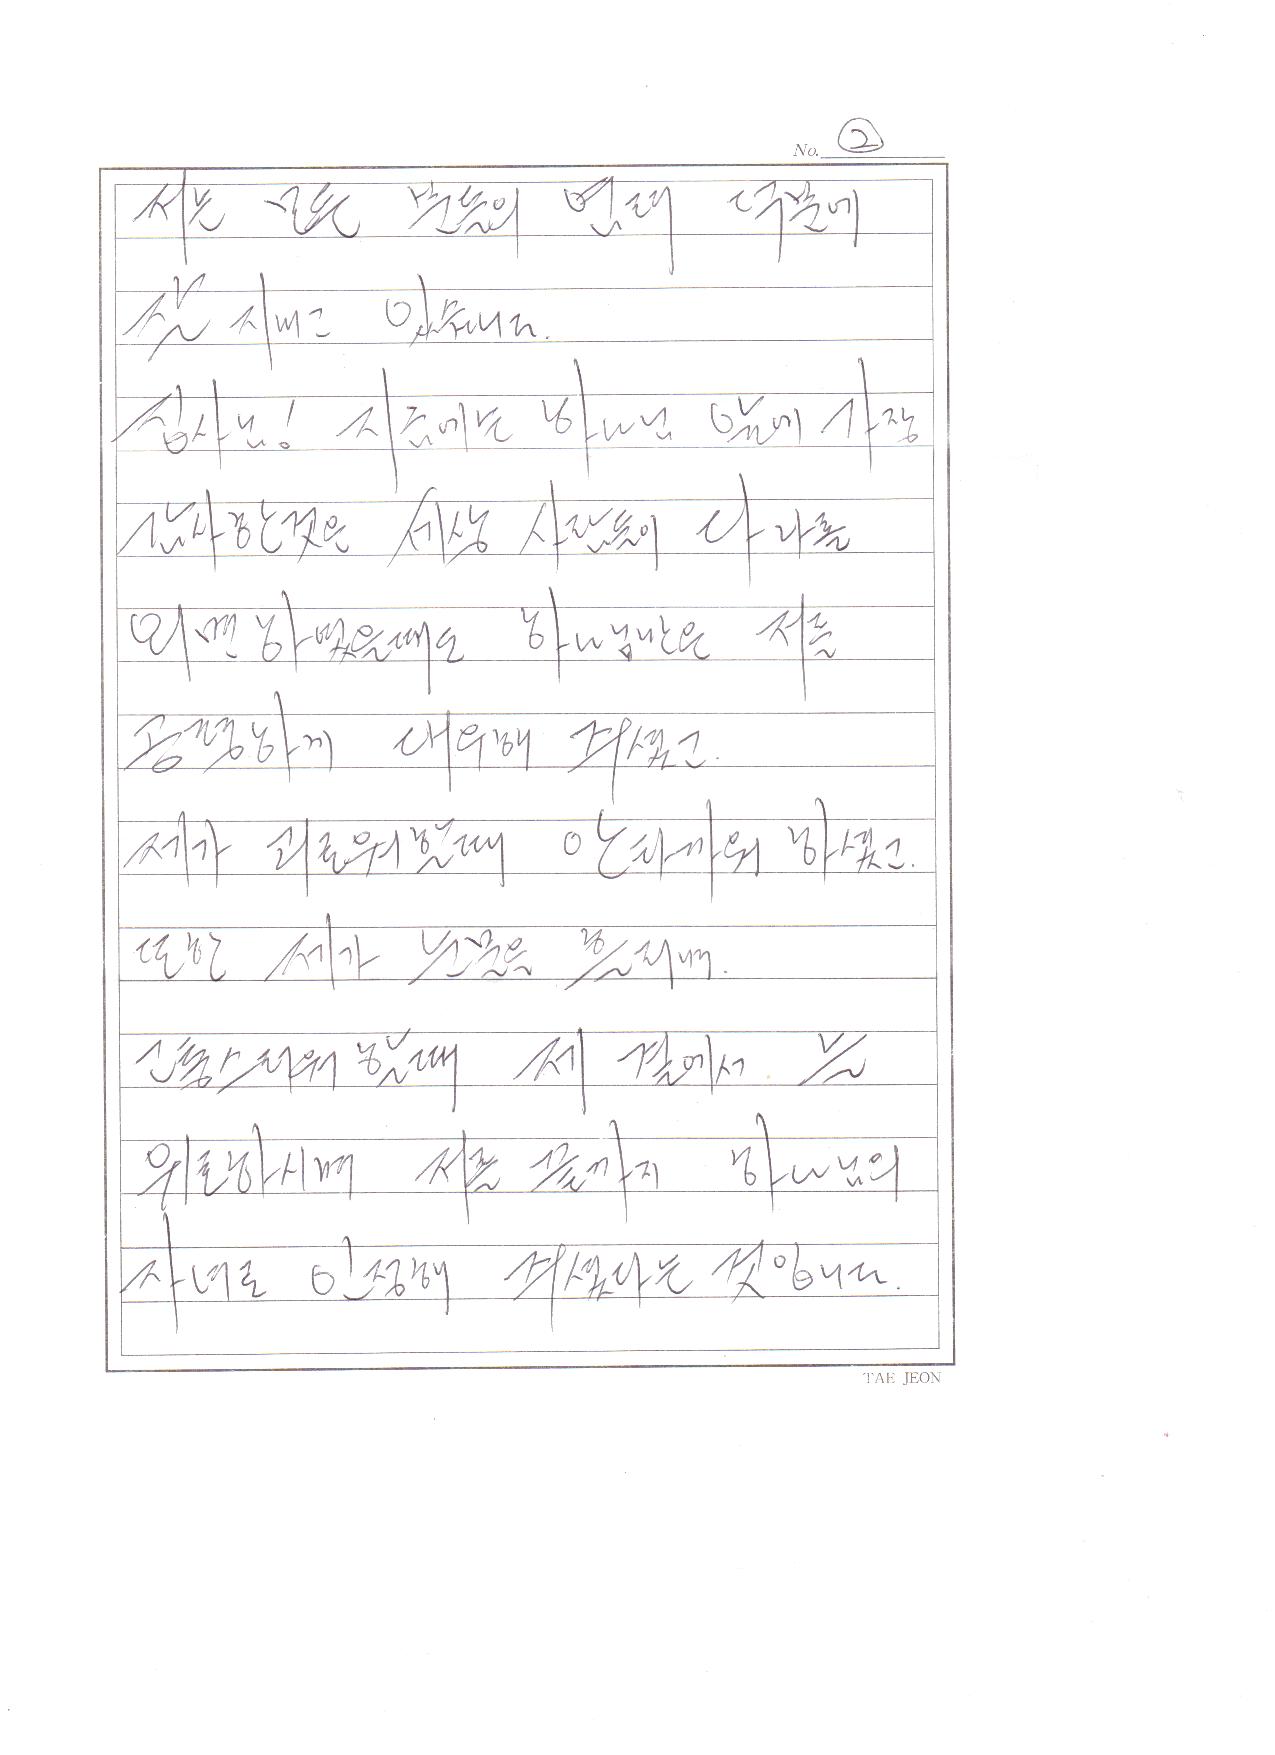 No. ②
저는 모든 분들의 염려 덕분에
잘 지내고 있습니다.
집사님! 지금에는 하나님 앞에 가장
감사한것은 세상 사람들이 다 나를
외면하였을때도 하나님만은 저를
공평하게 대우해 주셨고.
제가 괴로워할때 안타까워 하셨고.
또한 제가 눈물을 흘리며.
고통스러워 할때 제 곁에서 늘
위로하시며 저를 끝까지 하나님의
자녀로 인정해 주셨다는 것입니다.
TAE JEON